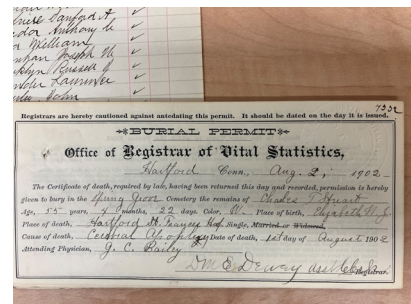 Sanford A
Anthony
William
Joseph
Russell
Laurence
John
7332
Registrars are hereby cautioned against antedating this permit. It should be dated on the day it is issued.
BURIAL PERMIT
Office of Registrar of Vital Statistics,
Hartford Conn., Aug. 2, 1902
The Certificate of death, required by law, having been returned this day and recorded, permission is hereby
given to bury in the Spring Grove Cemetery the remains of Charles T Stuart
Age, 55 years, 4 months, 22 days. Color, W. Place of birth, Elizabeth N.J.
Place of death, Hartford St. Francis Hosp Single, Married or Widowed,
Cause of death, Cerebral Apoplexy Date of death, 1st day of August 1902
Attending Physician, G. C. Bailey
D M E Dewey asst Registrar.